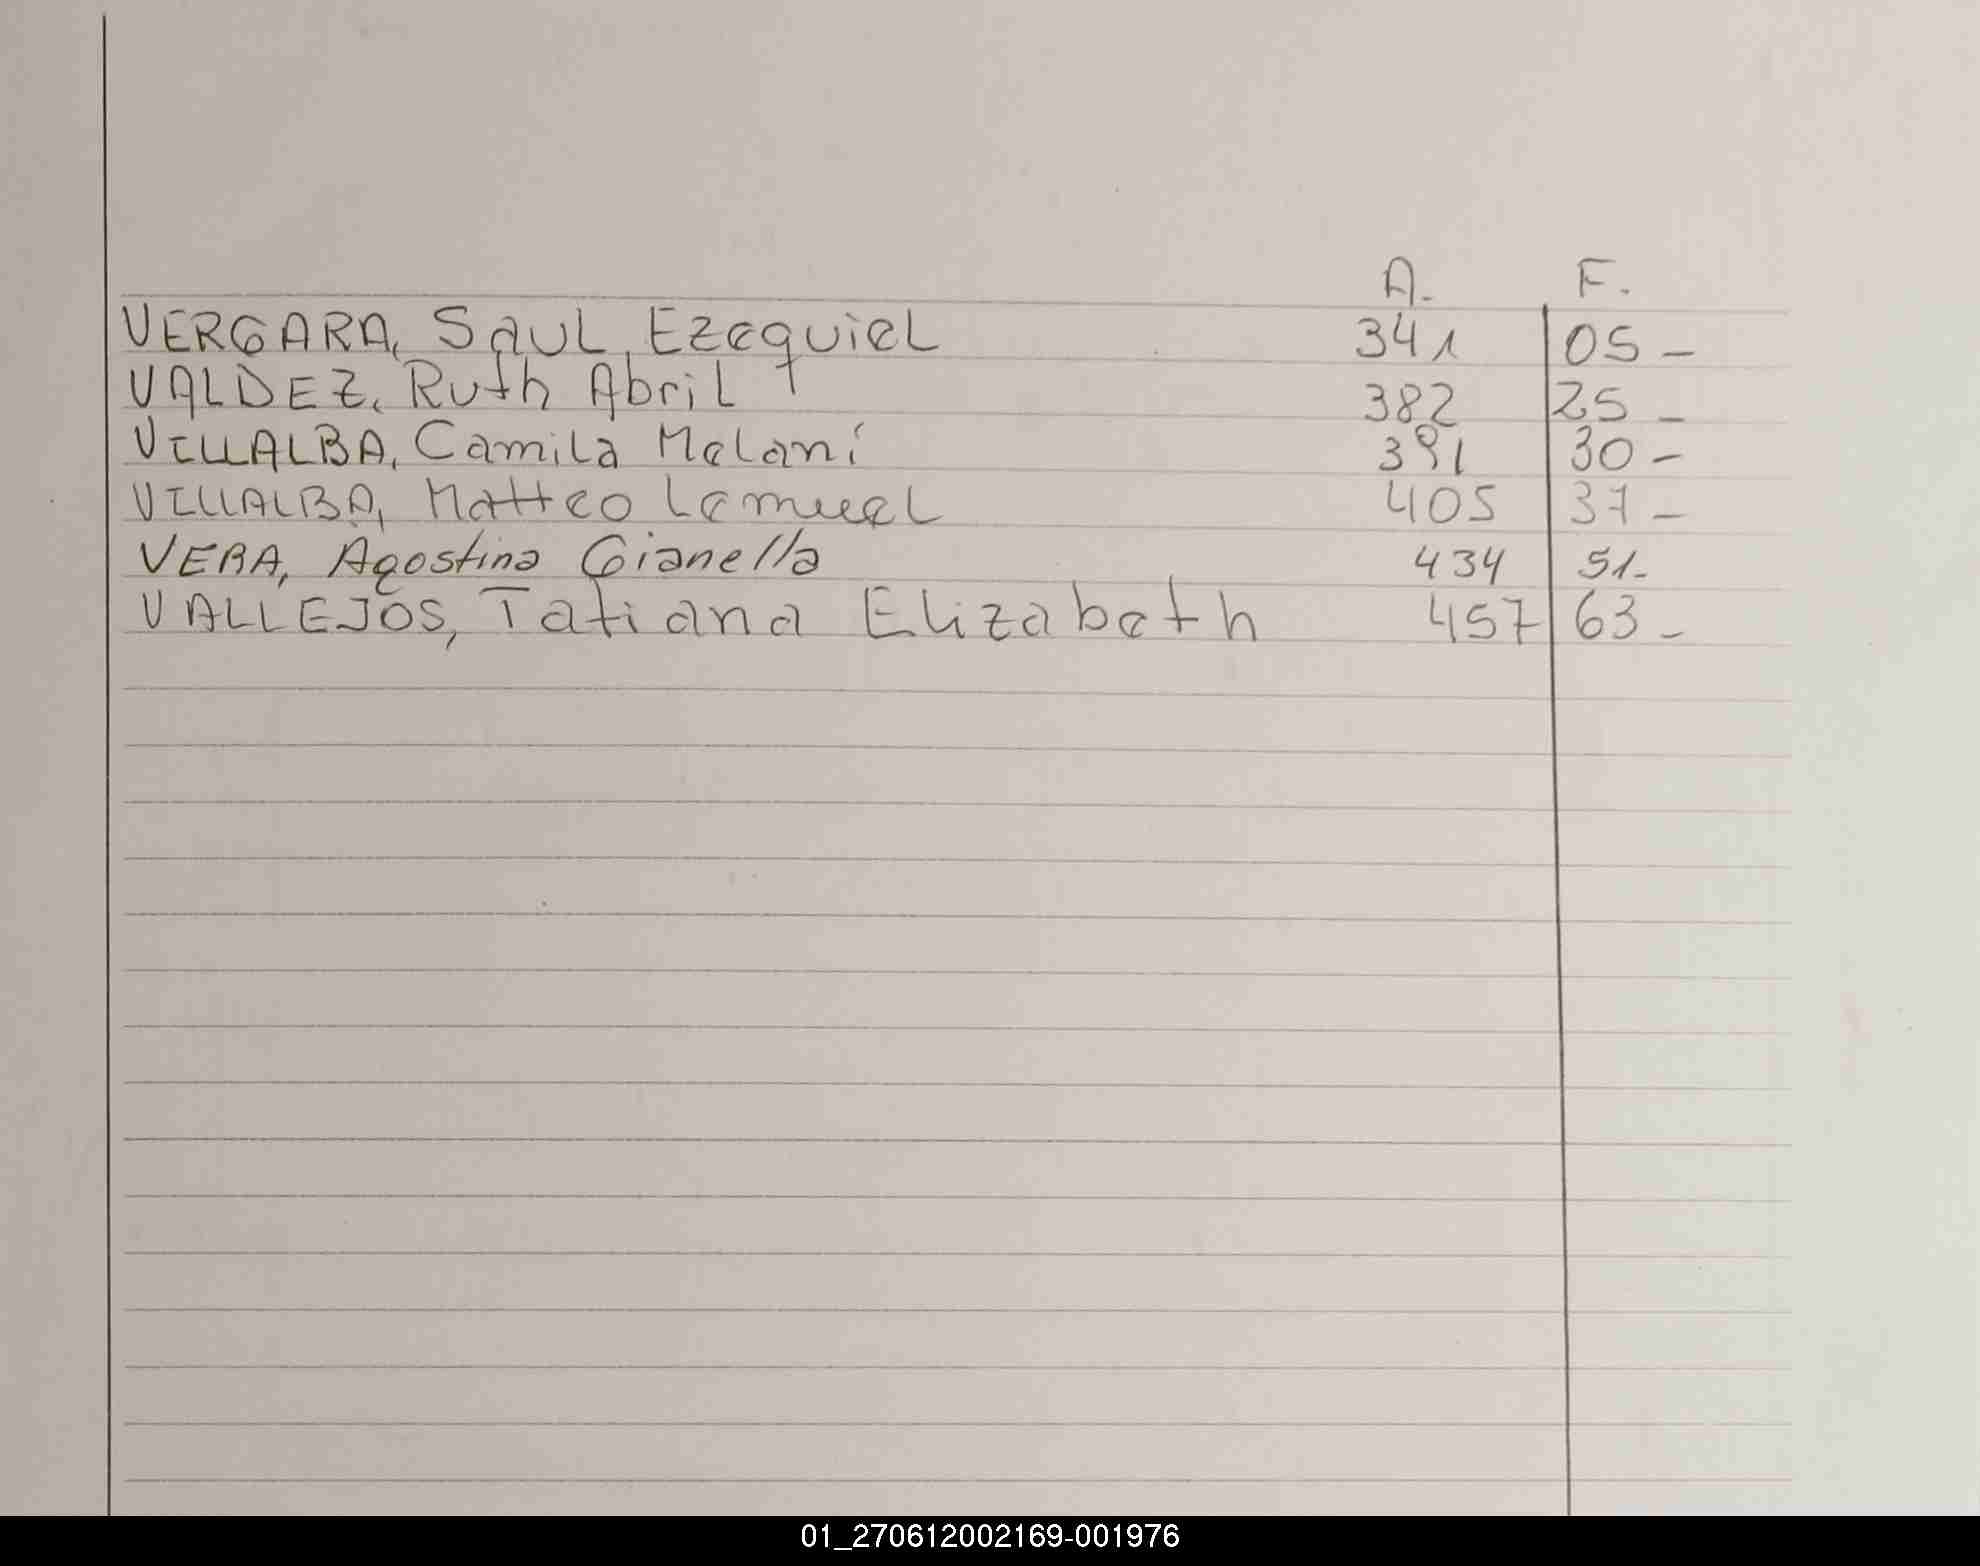 A. F.
VERGARA, Saul Ezequiel 341 05 -
VALDEZ, Ruth Abril 382 25 -
VILLALBA, Camila Melaní 391 30 -
VILLALBA, Matteo Lemuel 405 37 -
VERA, Agostina Gianella 434 51 -
VALLEJOS, Tatiana Elizabeth 457 63 -
01_270612002169-001976